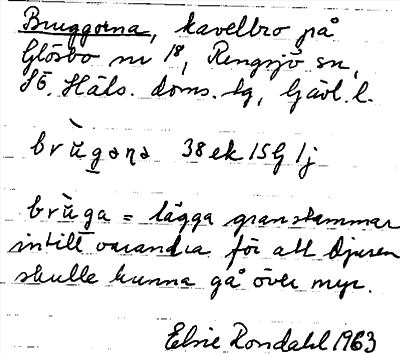 Bruggorna, kavelbro på
Glösbo nr 18, Rengsjö sn,
Sö. Häls. doms. lg, Gävl. l.
brù̄gəṇə 38 ek 15G 1j
brù̄ga = lägga granstammar
intill varandra för att djuren
skulle kunna gå över myr.
Elvie Rondahl 1963